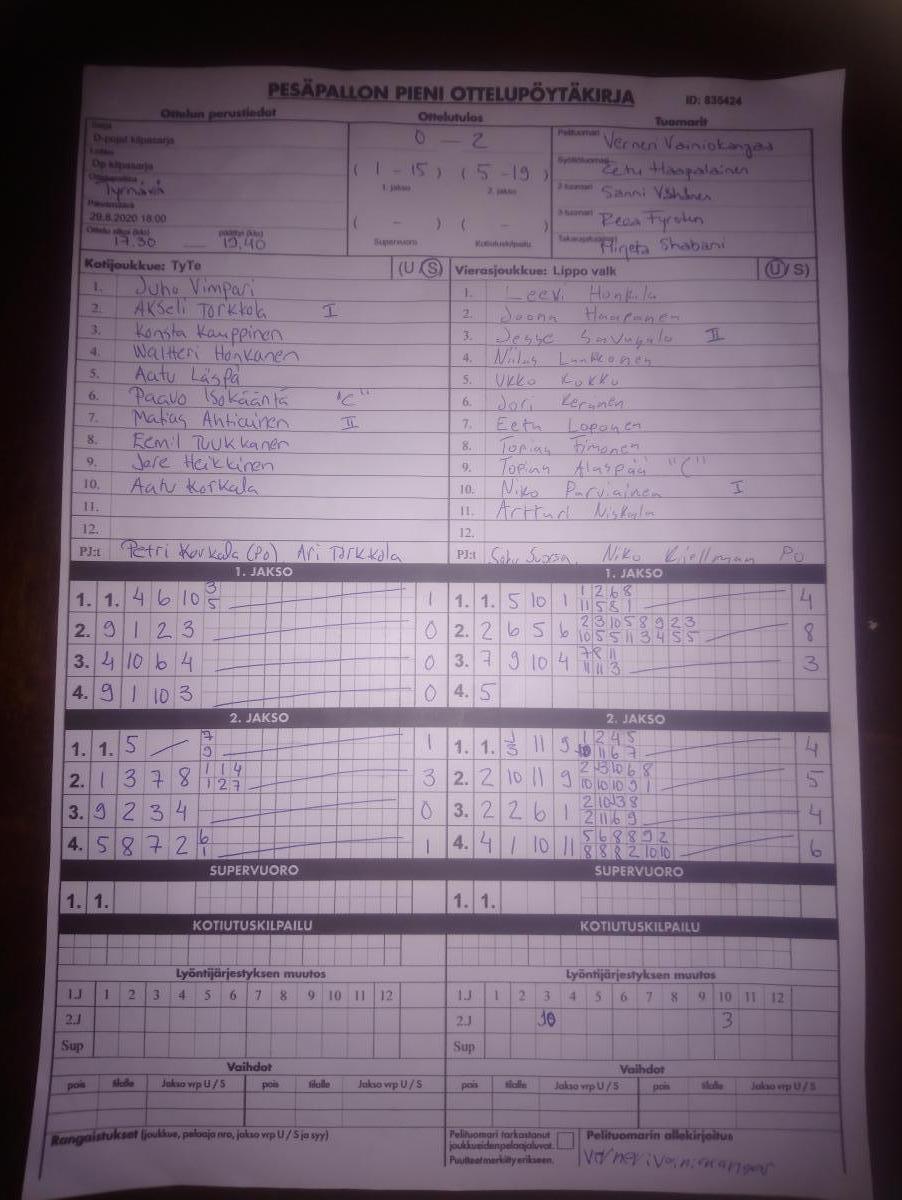 PESÄPALLON PIENI OTTELUPÖYTÄKIRJA ID: 835424
Ottelun perustiedot Ottelutulos Tuomarit
Sarja
D-pojat kilpasarja
Lohko
Dp kilpasarja
Ottelupaikka
Tyrnävä
Päivämäärä
29.8.2020 18:00
Ottelu alkoi (klo) päättyi (klo)
17.30 — 19.40
0 — 2
( 1 - 15 ) ( 5 - 19 )
1. jakso 2. jakso
( - ) ( - )
Supervuoro Kotiutuskilpailu
Pelituomari Verneri Vainiokangas
Syöttötuomari Eetu Haapalainen
2-tuomari Sanni
3-tuomari
Takarajatuomari Shabani
Kotijoukkue: TyTe (U S)
1. Juho Vimpari
2. Akseli Torkkola I
3. Konsta Kamppinen
4. Waltteri Honkanen
5. Aatu Läspä
6. Paavo Isokääntä "C"
7. Matias Ahtiainen II
8. Eemil Tuukkanen
9. Jare Heikkinen
10. Aatu Korkala
11.
12.
PJ:t Petri Korkala (Po) Ari Torkkola
Vierasjoukkue: Lippo valk (U S)
1. Leevi Honkila
2. Joona Haapanen
3. Jesse II
4. Niilas Lunkkonen
5. Ukko Kokko
6. Jori Keränen
7. Eetu Loponen
8. Topias Timonen
9. Topias Alaspää "C"
10. Niko Parviainen I
11. Artturi Niskala
12.
PJ:t Niko Kjellman Po
1. JAKSO
1. 1. 4 6 10 3 5 1
2. 9 1 2 3 0
3. 4 10 6 4 0
4. 9 1 10 3 0
1. JAKSO
1. 1. 5 10 1 1 2 6 8
11 5 8 1 4
2. 2 6 5 6 2 3 10 5 8 9 2 3
10 5 5 11 3 4 5 5 8
3. 7 9 10 4 7 8 11
11 11 3 3
4. 5
2. JAKSO
1. 1. 5 7 9 1
2. 1 3 7 8 1 1 4
1 2 7 3
3. 9 2 3 4 0
4. 5 8 7 2 6 1 1
2. JAKSO
1. 1. 11 9 1 2 4 5
10 11 6 7 4
2. 2 10 11 9 2 3 10 6 8
10 10 10 9 1 5
3. 2 2 6 1 2 10 3 8
2 11 6 9 4
4. 4 1 10 11 5 6 8 8 9 2
8 8 8 2 10 10 6
SUPERVUORO
1. 1.
SUPERVUORO
1. 1.
KOTIUTUSKILPAILU
KOTIUTUSKILPAILU
Lyöntijärjestyksen muutos
1.J 1 2 3 4 5 6 7 8 9 10 11 12
2.J
Sup
Lyöntijärjestyksen muutos
1.J 1 2 3 4 5 6 7 8 9 10 11 12
2.J 10 3
Sup
Vaihdot
pois tilalle Jakso vrp U / S pois tilalle Jakso vrp U / S
Vaihdot
pois tilalle Jakso vrp U / S pois tilalle Jakso vrp U / S
Rangaistukset (joukkue, pelaaja nro, jakso vrp U / S ja syy)
Pelituomari tarkastanut
joukkueiden pelaajaluvat.
Puutteet merkitty erikseen.
Pelituomarin allekirjoitus
Verneri Vainiokangas